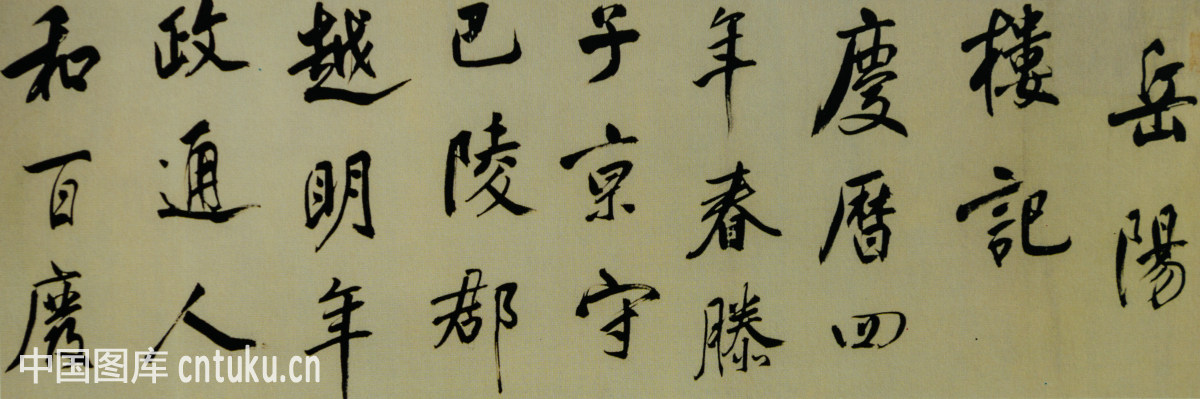 岳陽
樓記
慶曆四
年春滕
子京守
巴陵郡
越明年
政通人
和百廢
中国图库 cntuku.cn